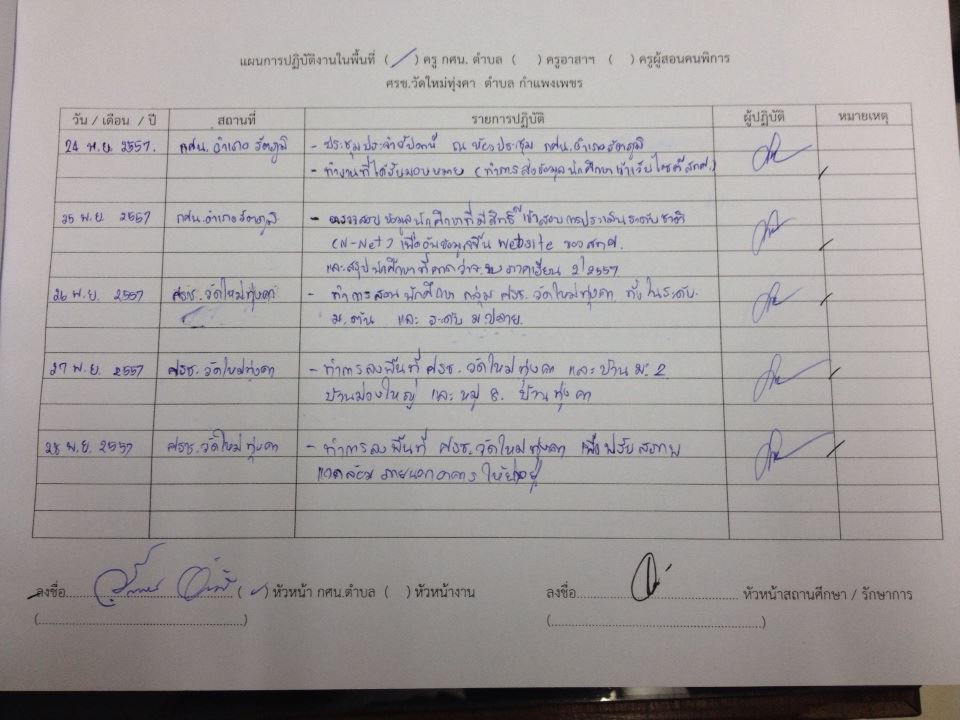 แผนการปฏิบัติงานในพื้นที่ ( / ) ครู กศน. ตำบล ( ) ครูอาสาฯ ( ) ครูผู้สอนคนพิการ
ศรช.วัดใหม่ทุ่งคา ตำบล กำแพงเพชร
วัน / เดือน / ปี สถานที่ รายการปฏิบัติ ผู้ปฏิบัติ หมายเหตุ
24 พ.ย. 2557. กศน. อำเภอ รัตภูมิ - ประชุมประจำสัปดาห์ ณ ห้องประชุม กศน.อำเภอรัตภูมิ
- ทำงานที่ได้รับมอบหมาย (ทำการส่งข้อมูลนักศึกษาเข้าเว็บไซต์ สทศ.)
25 พ.ย. 2557 กศน.อำเภอรัตภูมิ - ตรวจสอบข้อมูลนักศึกษาที่มีสิทธิ์เข้าสอบการประเมินระดับชาติ
(N-Net) เพื่อดันข้อมูลขึ้น Website ของ สทศ.
และสรุปนักศึกษาที่คาดว่าจะจบ ภาคเรียน 2/2557
26 พ.ย. 2557 ศรช. วัดใหม่ทุ่งคา - ทำการสอนนักศึกษา กลุ่ม ศรช. วัดใหม่ทุ่งคา ทั้งในระดับ
ม.ต้น และ ระดับ ม.ปลาย.
27 พ.ย. 2557 ศรช. วัดใหม่ทุ่งคา - ทำการลงพื้นที่ ศรช. วัดใหม่ทุ่งคา และบ้าน ม. 2
บ้านม่วงใหญ่ และ หมู่ 8. บ้านทุ่งคา
28 พ.ย. 2557 ศรช. วัดใหม่ทุ่งคา - ทำการลงพื้นที่ ศรช. วัดใหม่ทุ่งคา เพื่อปรับสภาพ
แวดล้อม ภายนอกอาคาร ให้น่าอยู่
ลงชื่อ ( / ) หัวหน้า กศน.ตำบล ( ) หัวหน้างาน ลงชื่อ หัวหน้าสถานศึกษา / รักษาการ